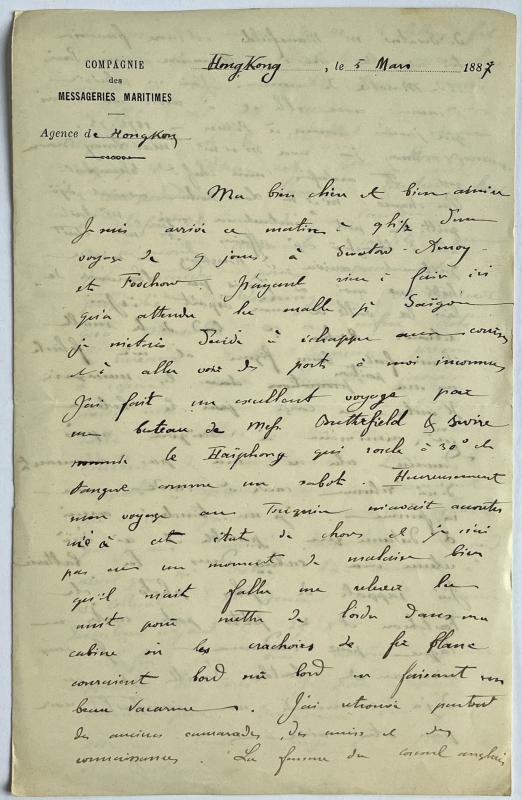 COMPAGNIE
des
MESSAGERIES MARITIMES
Agence de HongKong
HongKong, le 5 Mars 1887
Ma bien chère et bien aimée
Je suis arrivé ce matin à 9h½ d'un
voyage de 9 jours à Swatow - Amoy -
et Foochow. N'ayant rien à faire ici
qu'a attendre la malle pr Saïgon
je décidé à échapper aux
et à aller voir des ports à moi inconnus
J'ai fait un excellent voyage par
un bateau de Mess Butterfield & Swire
le Haïphong qui roule à 30° et
tangue comme un sabot. Heureusement
mon voyage au Tonquin m'avait accoutu
mé à cet état de choses et je n'ai
pas eu un moment de malaise bien
qu'il m'ait fallu me relever la
nuit pour mettre de l'ordre dans ma
cabine où les crachoirs de fer blanc
couraient bord sur bord en faisant un
beau vacarme. J'ai retrouvé partout
des anciens camarades, des amis et des
connaissances. La femme du consul anglais